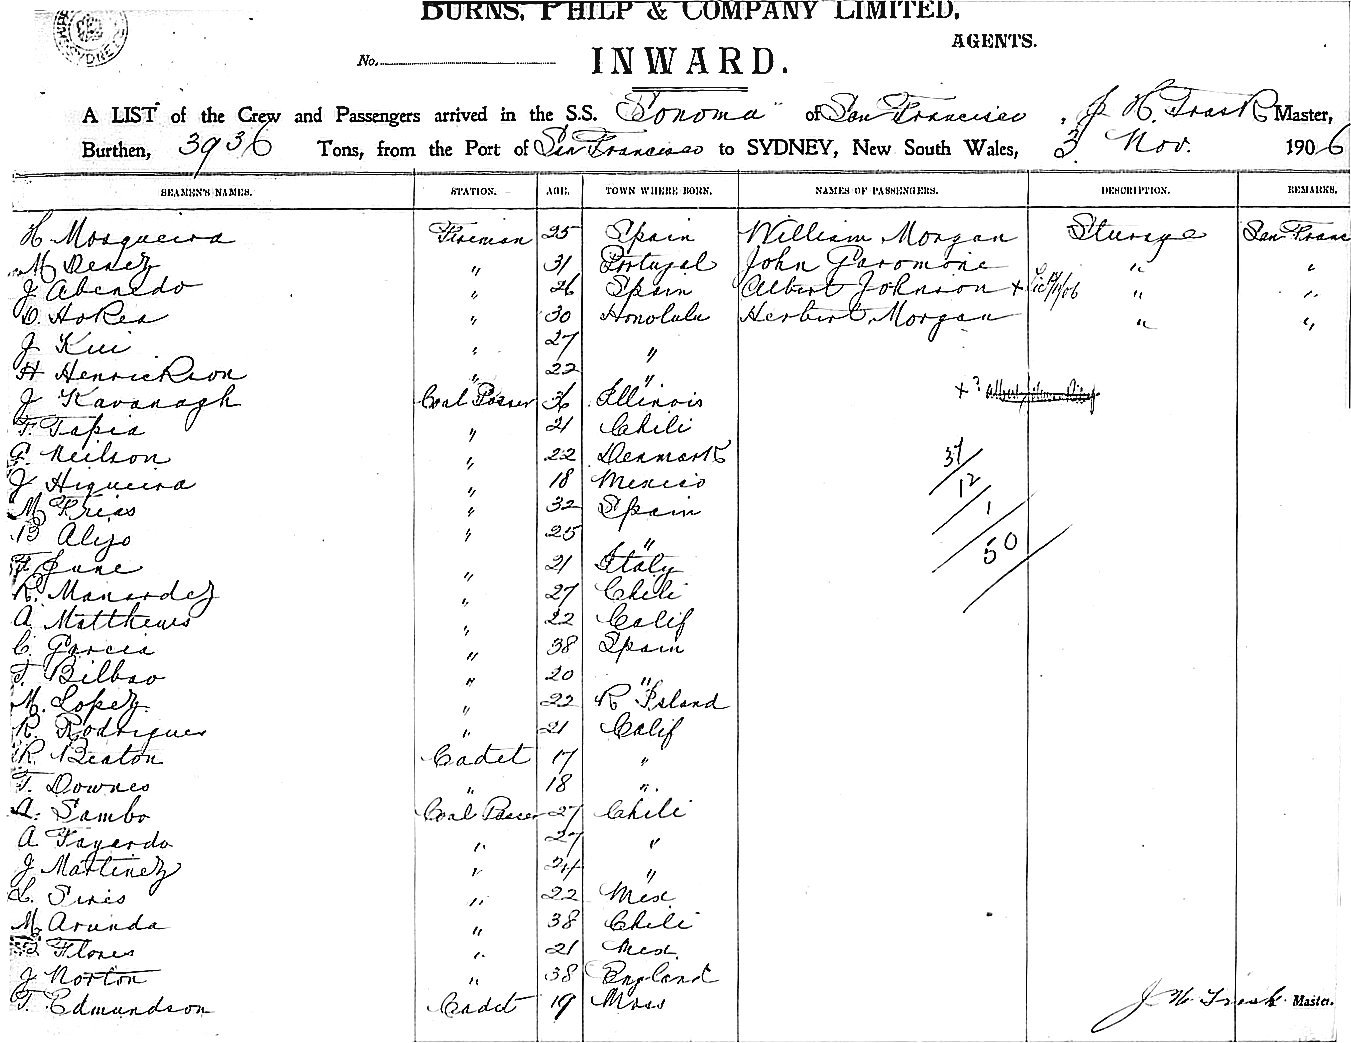 BURNS, PHILP & COMPANY LIMITED,
AGENTS.
No.
INWARD.
A LIST of the Crew and Passengers arrived in the S.S. "Sonoma" of San Francisco, J H. Trask Master,
Burthen, 3936 Tons, from the Port of San Francisco to SYDNEY, New South Wales, 3 Nov. 1906
SEAMEN'S NAMES. STATION. AGE. TOWN WHERE BORN. NAMES OF PASSENGERS. DESCRIPTION. REMARKS.
H Mosqueira Fireman 25 Spain William Morgan Sturage San Franc
M " 31 Portugal John " "
J Abenedo " 26 Spain Albert Johnson + " "
D. Hokea " 30 Honolulu Herbert Morgan " "
J Kui " 27 "
H Henrickson " 22 "
J Kavanagh Coal Passer 36 Illinois + ?
F. Tapia " 21 Chili
Neilson " 22 Denmark 37
J Higueira " 18 Mexico 12
M Frias " 32 Spain 1
B Alijo " 25 " 50
F June " 21 Italy
R. Manardez " 27 Chili
A. Matthews " 22 Calif
C. Garcia " 38 Spain
Bilbao " 20 "
M. Lopez " 22 R Island
R. Rodrigues " 21 Calif
R. Beaton Cadet 17 "
T. Downes " 18 "
A. Sambo Coal Passer 27 Chili
A Fayardo " 27 "
J Martinez " 24 "
Sires " 22 Mex
M Arunda " 38 Chili
Flores " 21 Mex.
J Norton " 38 England
T. Edmundson Cadet 19 Mass
J H Trask Master.